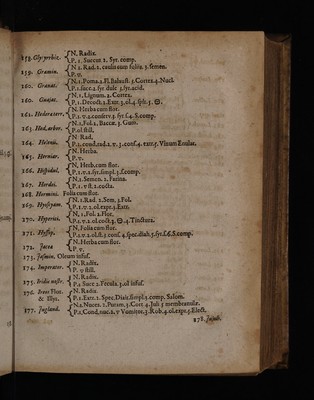 N. Radix.
158. Glycyrrhiz. P. 1. Succus 2. Syr. comp.
N 2. Rad. 2. caulis cum foliis 3. semen.
159. Gramin. P. v.
N. 1. Poma. 2. Fl. Balaust. 3. Cortex. 4. Nucl.
160. Granat. P. 1. succ. 2. syr dulc 3. syr. acid.
N. 1. Lignum. 2. Cortex.
161. Guajac. P. 1. Decoct.
N. Herba cum flor.
162. Hederæ terr. P. 1. v. 2. conserv. 3. syr. f. 4. S. comp.
N. 1. Fol. 2. Baccæ. 3. Gum.
163. Hed. arbor. P. ol still.
N. Rad.
164. Helenii. P. 1. cond. rad. 2. v. 3. conf. 4. extr. 5. Vinum Enulat.
N. Herba.
165. Herniar. P. v.
N. Herb. cum flor.
166. P. 1. v. 2. syr. simpl. 3. f. comp.
N. 1. Semen. 2. Farina.
167. Hordei. P. 1. v st. 2. cocta.
168. Hormini. Folia cum flor.
N. 1. Rad. 2. Sem. 3. Fol.
169. Hyoscyam. P. 1. v. 2. ol. expr. 3. Extr.
N. 1. Fol. 2. Flor.
170. Hyperici. P. 1. v. 2. ol. coct. 3. 4. Tinctura.
N. Folia cum flor.
171. Hyssop. P. 1. v. 2. ol. st. 3. conf. 4. spec. diah. 5. syr. f. 6. S. comp.
N. Herba cum flor.
172. Jacea P. v.
173. Jasmin. Oleum infus.
N. Radix.
174. Imperator. P. v still.
N. Radix.
175. Iridis nostr. P. 1. Succ 2. Fecula. 3. ol infus.
176. Ireos Flor. N. Radix.
& Illyr. P. 1. Extr. 2. Spec. Diaïr. simpl. 3. comp. Salom.
N. 1. Nuces. 2. Putam. 3. Cort. 4. Juli 5 membranulæ.
177. Jugland. P. 1. Cond. nuc. 2. v Vomitor. 3. Rob. 4. ol. expr. 5. Elect.
178. Jujub.